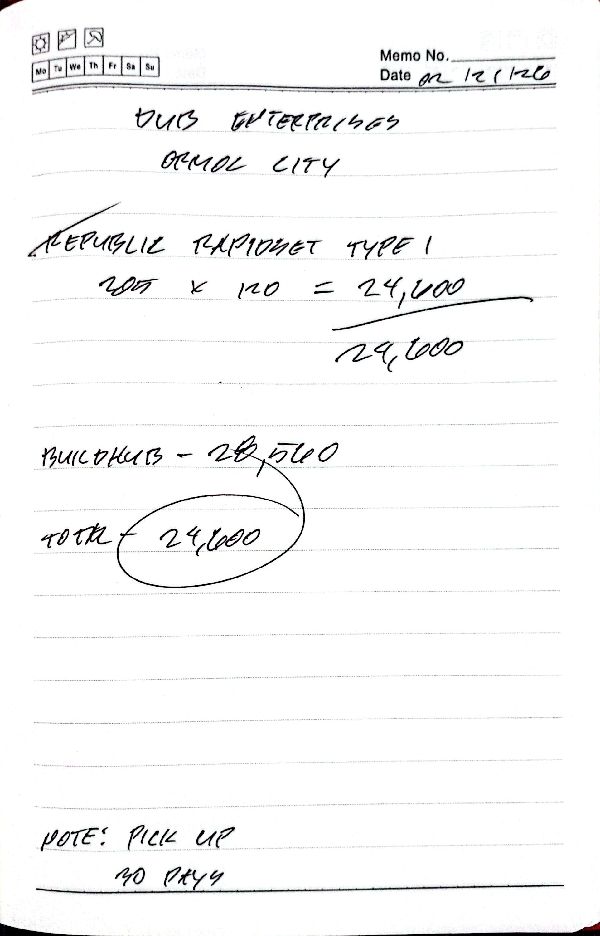 Mo Tu We Th Fr Sa Su
Memo No.
Date 02/21/26
DUB ENTERPRISES
ORMOC CITY
REPUBLIC RAPIDSET TYPE 1
205 x 120 = 24,600
24,600
BUILDHUB - 28,560
TOTAL - 24,600
NOTE: PICK UP
30 DAYS